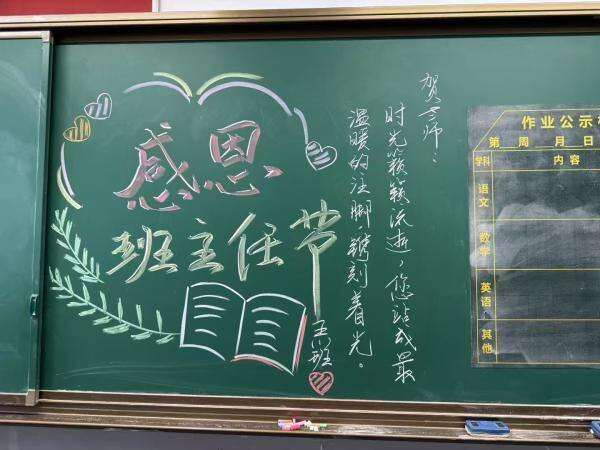 感恩
班主任节
贺老师：
时光簌簌流逝，您站成最
温暖的注脚，镌刻着光。
班
作业公示
第 周 月 日
学科 内容
语文
数学
英语
其他